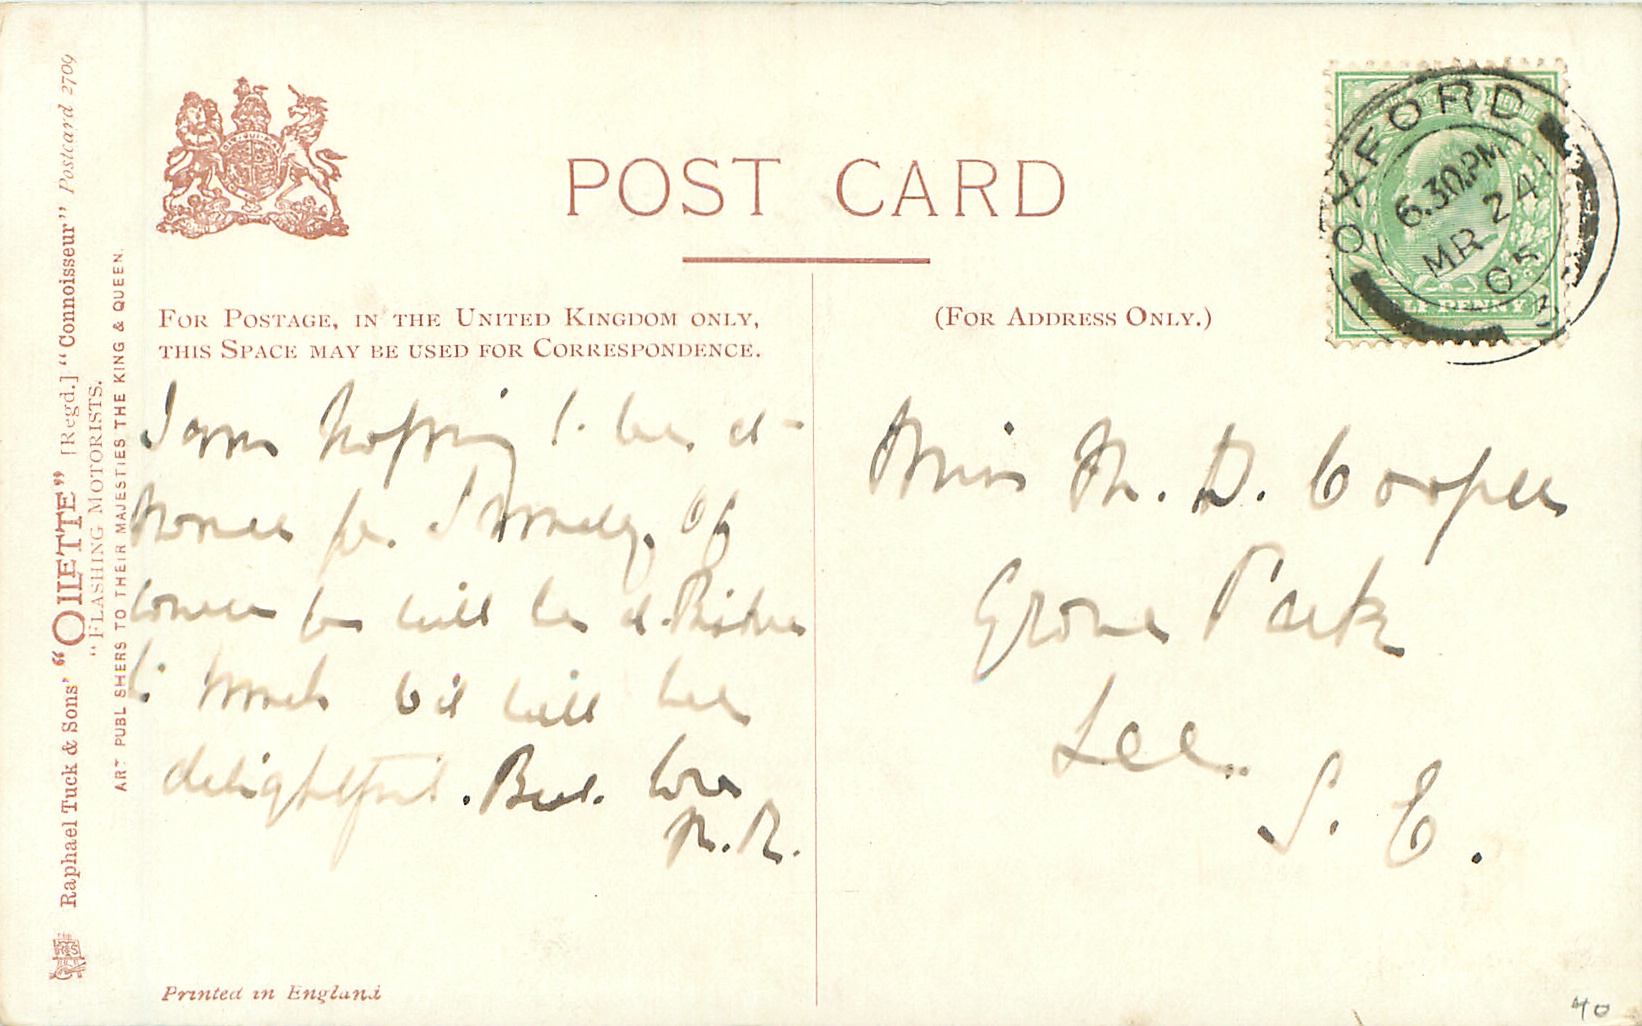 POST CARD
FOR POSTAGE, IN THE UNITED KINGDOM ONLY,
THIS SPACE MAY BE USED FOR CORRESPONDENCE.
(FOR ADDRESS ONLY.)
I am hoping to be at
home for Sunday. Of
course you will be at
to &
delightful. Best love
Miss M. D. Cooper
Grove Park
Lee.
S. E.
OXFORD
6.30.PM
MR 24
05
3
HALFPENNY
Raphael Tuck & Sons' "OILETTE" [Regd.] "Connoisseur" Postcard 2709
"FLASHING MOTORISTS.
ART PUBLISHERS TO THEIR MAJESTIES THE KING & QUEEN.
Printed in England
40